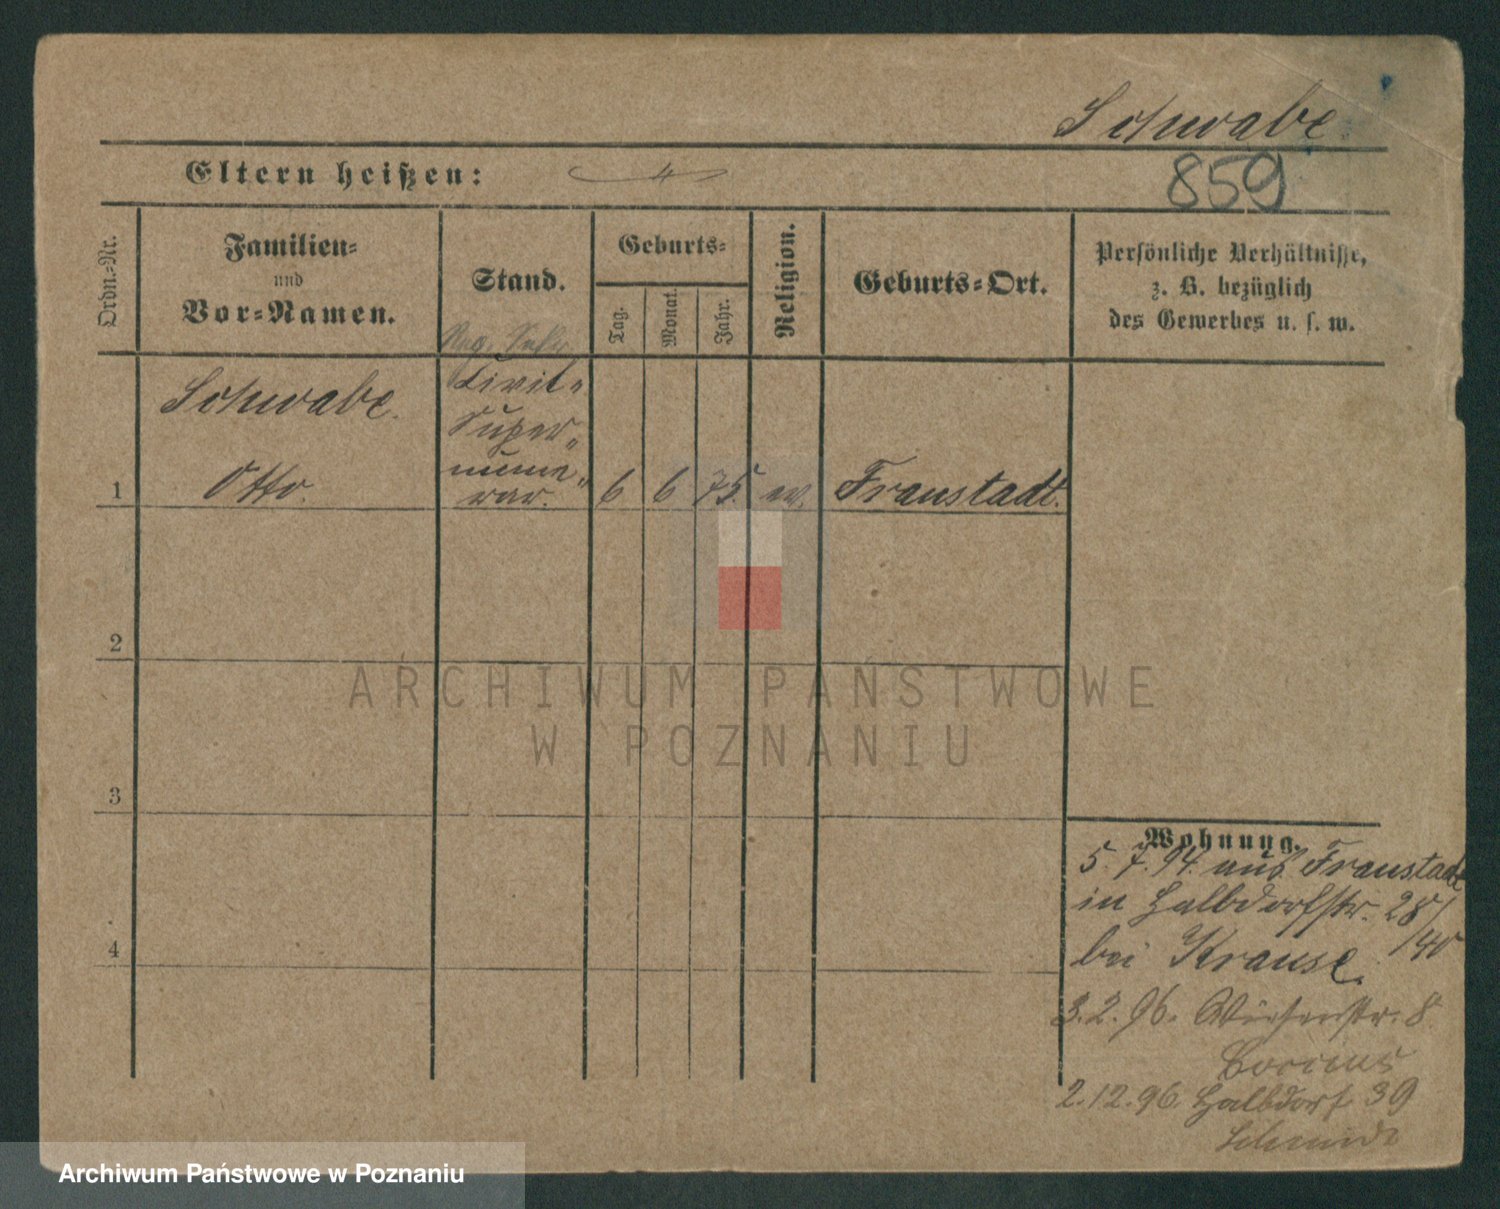 Schwabe
Eltern heißen:
859
Ordn.-Nr.
Familien-
und
Vor-Namen.
Stand.
Geburts-
Tag.
Monat.
Jahr.
Religion.
Geburts-Ort.
Persönliche Verhältnisse,
z. B. bezüglich
des Gewerbes u. s. w.
Reg. Sekr.
Schwabe.
Civil-
Super-
nume-
rar.
1 Otto. 6 6 75. ev. Fraustadt.
2
3
4
ARCHIWUM PAŃSTWOWE
W POZNANIU
Wohnung.
5. 7. 94. aus Fraustadt
in Halbdorfstr. 28/
/40
bei Krause.
3. 2. 96. Wiesenstr. 8
2. 12. 96. Halbdorf 39
Archiwum Państwowe w Poznaniu